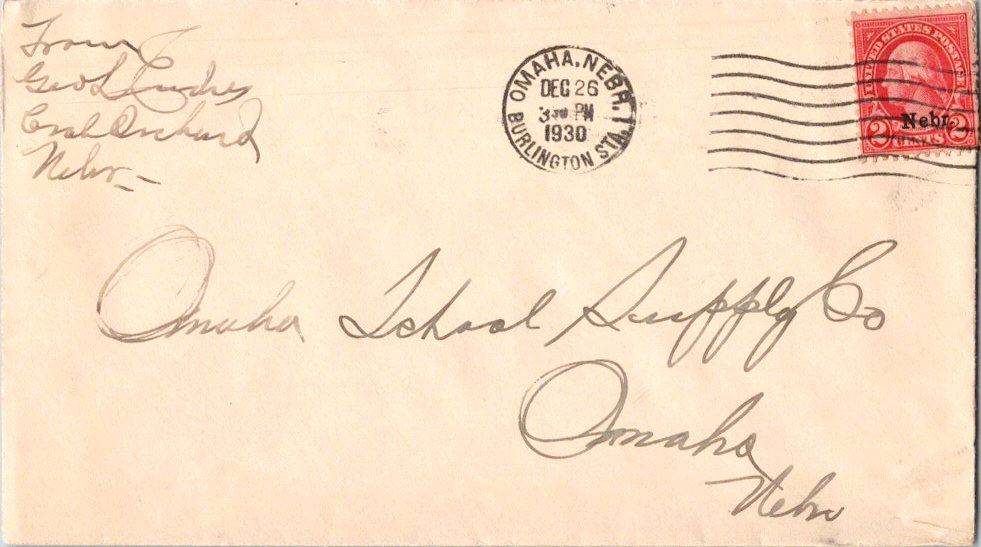 From
Geo L
Crab Orchard
Nebr
OMAHA, NEBR. 1
DEC 26
3 30 PM
1930
BURLINGTON STA.
UNITED STATES POSTAGE
Nebr.
2 CENTS 2
Omaha School Supply Co
Omaha
Nebr